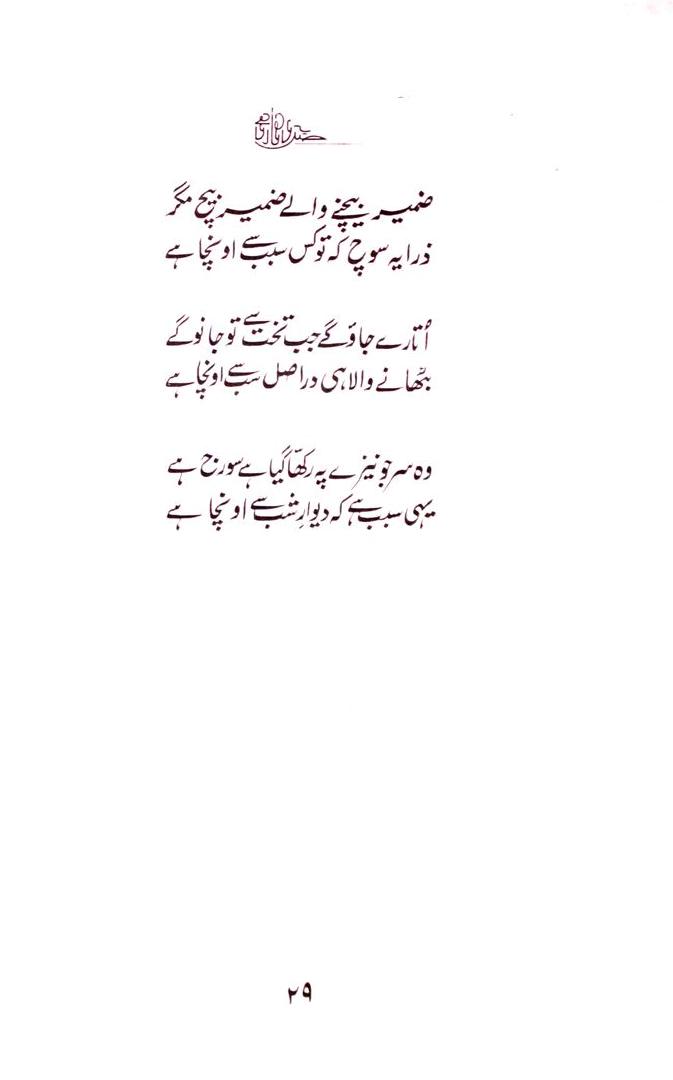 ضمیر بیچنے والے ضمیر بیچ مگر
ذرا یہ سوچ کہ تو کس سبب سے اونچا ہے
اُتارے جاؤ گے جب تخت سے تو جانو گے
بٹھانے والا ہی دراصل سب سے اونچا ہے
وہ سر جو نیزے پہ رکھا گیا ہے سورج ہے
یہی سبب ہے کہ دیوارِ شب سے اونچا ہے
۲۹